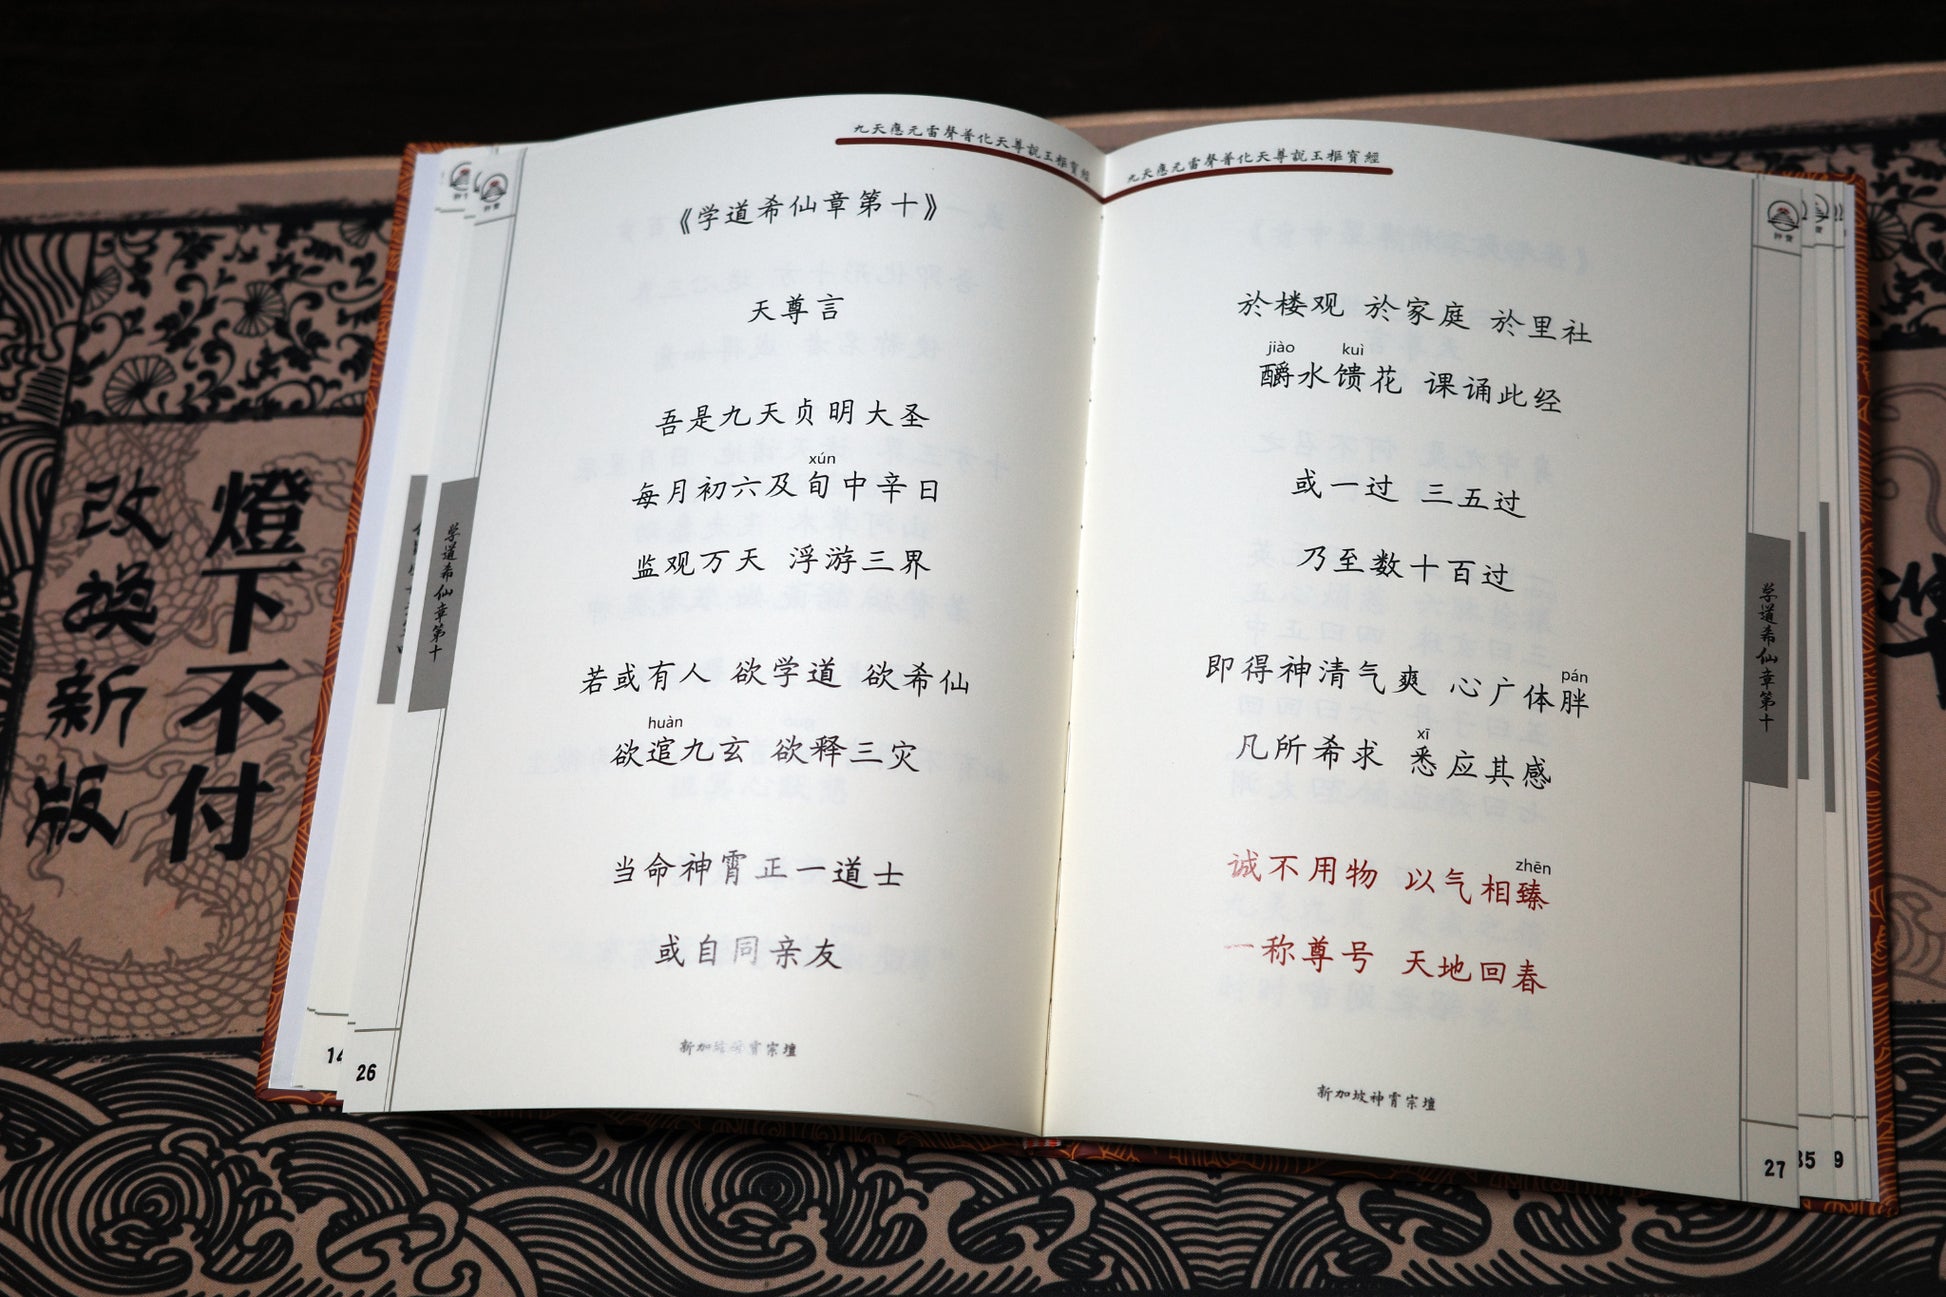 九天應元雷聲普化天尊說玉樞寶經
《学道希仙章第十》
天尊言
吾是九天贞明大圣
xún
每月初六及旬中辛日
监观万天 浮游三界
若或有人 欲学道 欲希仙
huàn
欲逭九玄 欲释三灾
当命神霄正一道士
或自同亲友
新加坡神霄宗壇
学道希仙章第十
14
26
九天應元雷聲普化天尊說玉樞寶經
於楼观 於家庭 於里社
jiào kuì
醮水馈花 课诵此经
或一过 三五过
乃至数十百过
pán
即得神清气爽 心广体胖
xī
凡所希求 悉应其感
zhēn
诚不用物 以气相臻
一称尊号 天地回春
新加坡神霄宗壇
学道希仙章第十
27
35
9
燈下不付
改換新版